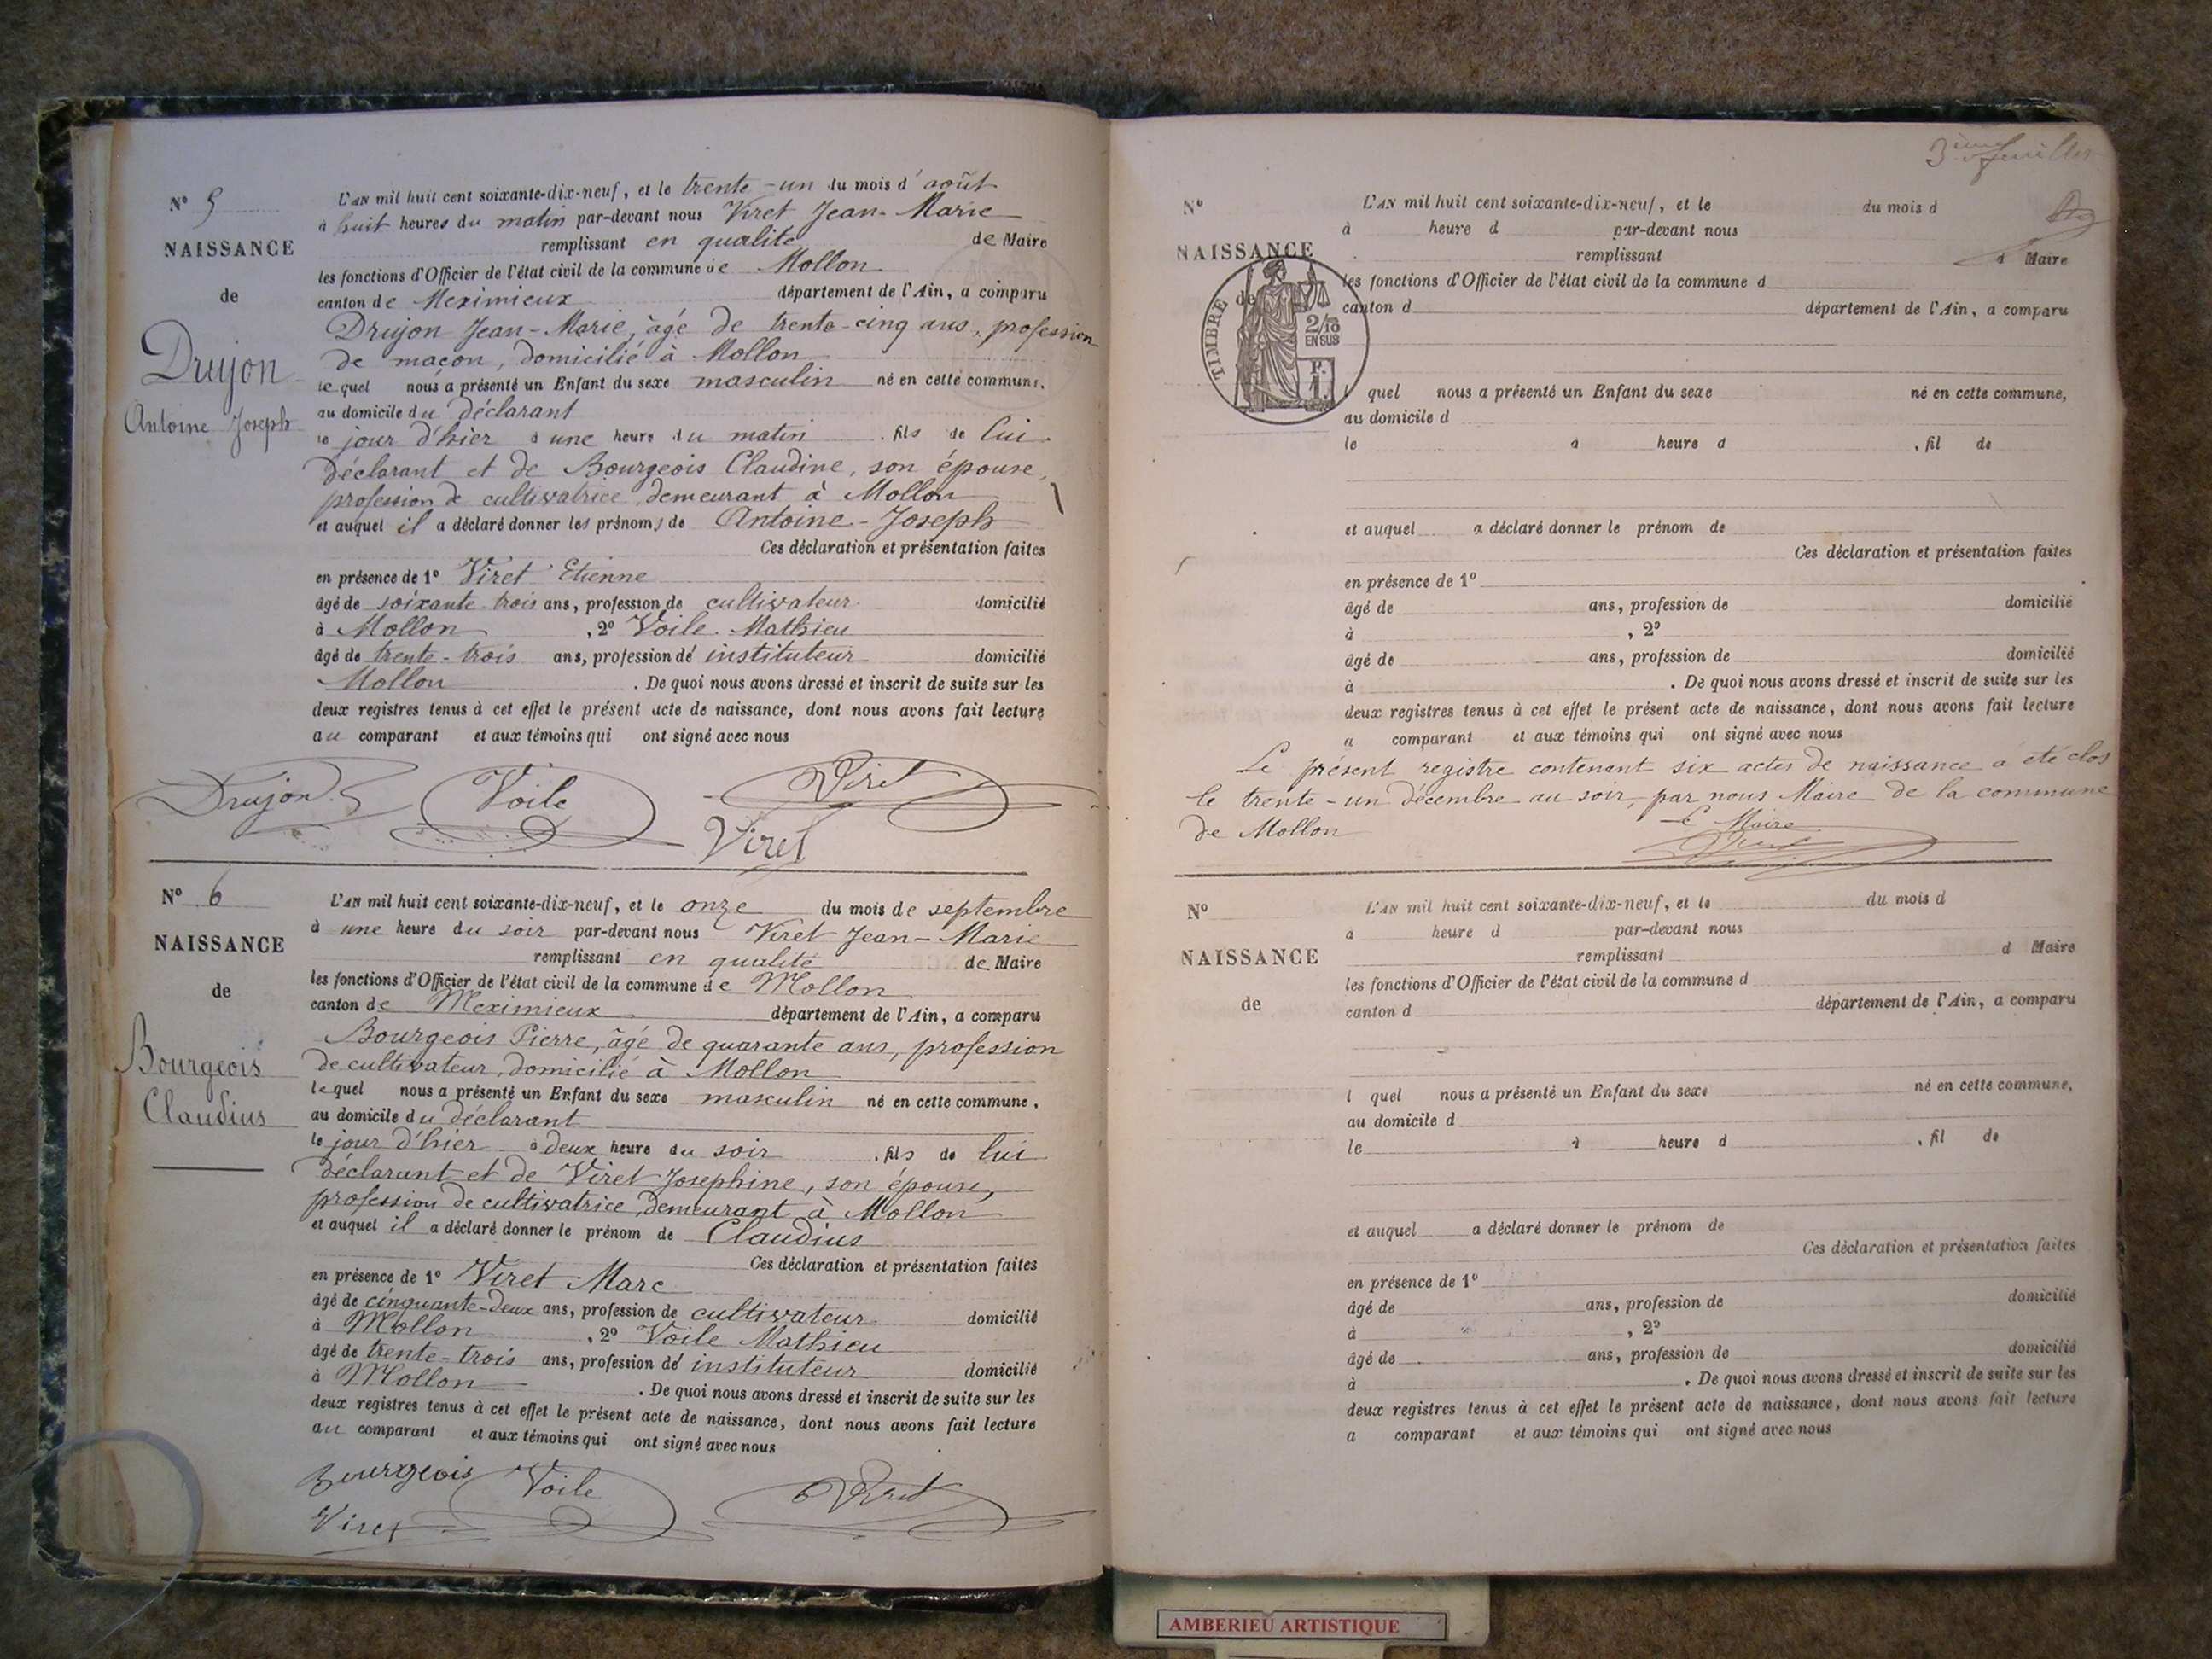 N° 5
NAISSANCE
de
Drujon
Antoine Joseph
L'AN mil huit cent soixante-dix-neuf, et le trente-un du mois d'août
à huit heures du matin par-devant nous Viret Jean-Marie
remplissant en qualité de Maire
les fonctions d'Officier de l'état civil de la commune de Mollon
canton de Meximieux département de l'Ain, a comparu
Drujon Jean-Marie, âgé de trente-cinq ans, profession
de maçon, domicilié à Mollon
lequel nous a présenté un Enfant du sexe masculin né en cette commune,
au domicile du déclarant
le jour d'hier à une heure du matin, fils de lui
déclarant et de Bourgeois Claudine, son épouse,
profession de cultivatrice, demeurant à Mollon
et auquel il a déclaré donner les prénoms de Antoine-Joseph
Ces déclaration et présentation faites
en présence de 1° Viret Etienne
âgé de soixante-trois ans, profession de cultivateur domicilié
à Mollon, 2° Voile Mathieu
âgé de trente-trois ans, profession de instituteur domicilié
Mollon. De quoi nous avons dressé et inscrit de suite sur les
deux registres tenus à cet effet le présent acte de naissance, dont nous avons fait lecture
au comparant et aux témoins qui ont signé avec nous
Drujon Voile Viret
Viret
N° 6
NAISSANCE
de
Bourgeois
Claudius
L'AN mil huit cent soixante-dix-neuf, et le onze du mois de septembre
à une heure du soir par-devant nous Viret Jean-Marie
remplissant en qualité de Maire
les fonctions d'Officier de l'état civil de la commune de Mollon
canton de Meximieux département de l'Ain, a comparu
Bourgeois Pierre, âgé de quarante ans, profession
de cultivateur, domicilié à Mollon
lequel nous a présenté un Enfant du sexe masculin né en cette commune,
au domicile du déclarant
le jour d'hier à deux heure du soir, fils de lui
déclarant et de Viret Josephine, son épouse,
profession de cultivatrice, demeurant à Mollon
et auquel il a déclaré donner le prénom de Claudius
Ces déclaration et présentation faites
en présence de 1° Viret Marc
âgé de cinquante-deux ans, profession de cultivateur domicilié
à Mollon, 2° Voile Mathieu
âgé de trente-trois ans, profession de instituteur domicilié
à Mollon. De quoi nous avons dressé et inscrit de suite sur les
deux registres tenus à cet effet le présent acte de naissance, dont nous avons fait lecture
au comparant et aux témoins qui ont signé avec nous
Bourgeois Voile Viret
Viret
3ième feuillet
N°
NAISSANCE
de
TIMBRE
2/10
EN SUS
F.
1.
L'AN mil huit cent soixante-dix-neuf, et le du mois d
à heure d par-devant nous
remplissant d Maire
les fonctions d'Officier de l'état civil de la commune d
canton d département de l'Ain, a comparu
l quel nous a présenté un Enfant du sexe né en cette commune,
au domicile d
le à heure d , fil de
et auquel a déclaré donner le prénom de
Ces déclaration et présentation faites
en présence de 1°
âgé de ans, profession de domicilié
à , 2°
âgé de ans, profession de domicilié
à . De quoi nous avons dressé et inscrit de suite sur les
deux registres tenus à cet effet le présent acte de naissance, dont nous avons fait lecture
a comparant et aux témoins qui ont signé avec nous
Le présent registre contenant six actes de naissance a été clos
le trente-un décembre au soir, par nous Maire de la commune
de Mollon
Le Maire
Viret
N°
NAISSANCE
de
L'AN mil huit cent soixante-dix-neuf, et le du mois d
à heure d par-devant nous
remplissant d Maire
les fonctions d'Officier de l'état civil de la commune d
canton d département de l'Ain, a comparu
l quel nous a présenté un Enfant du sexe né en cette commune,
au domicile d
le à heure d , fil de
et auquel a déclaré donner le prénom de
Ces déclaration et présentation faites
en présence de 1°
âgé de ans, profession de domicilié
à , 2°
âgé de ans, profession de domicilié
à . De quoi nous avons dressé et inscrit de suite sur les
deux registres tenus à cet effet le présent acte de naissance, dont nous avons fait lecture
a comparant et aux témoins qui ont signé avec nous
AMBERIEU ARTISTIQUE